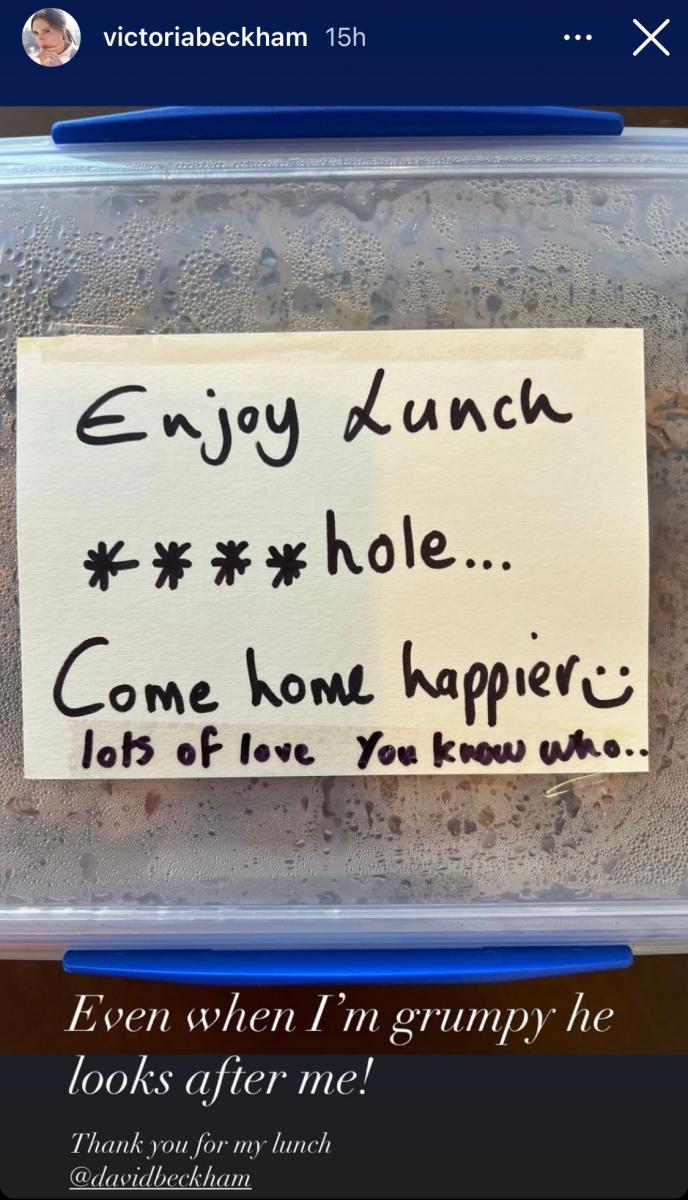 victoriabeckham 15h
Enjoy Lunch
****hole...
Come home happier
lots of love You know who..
Even when I'm grumpy he
looks after me!
Thank you for my lunch
@davidbeckham